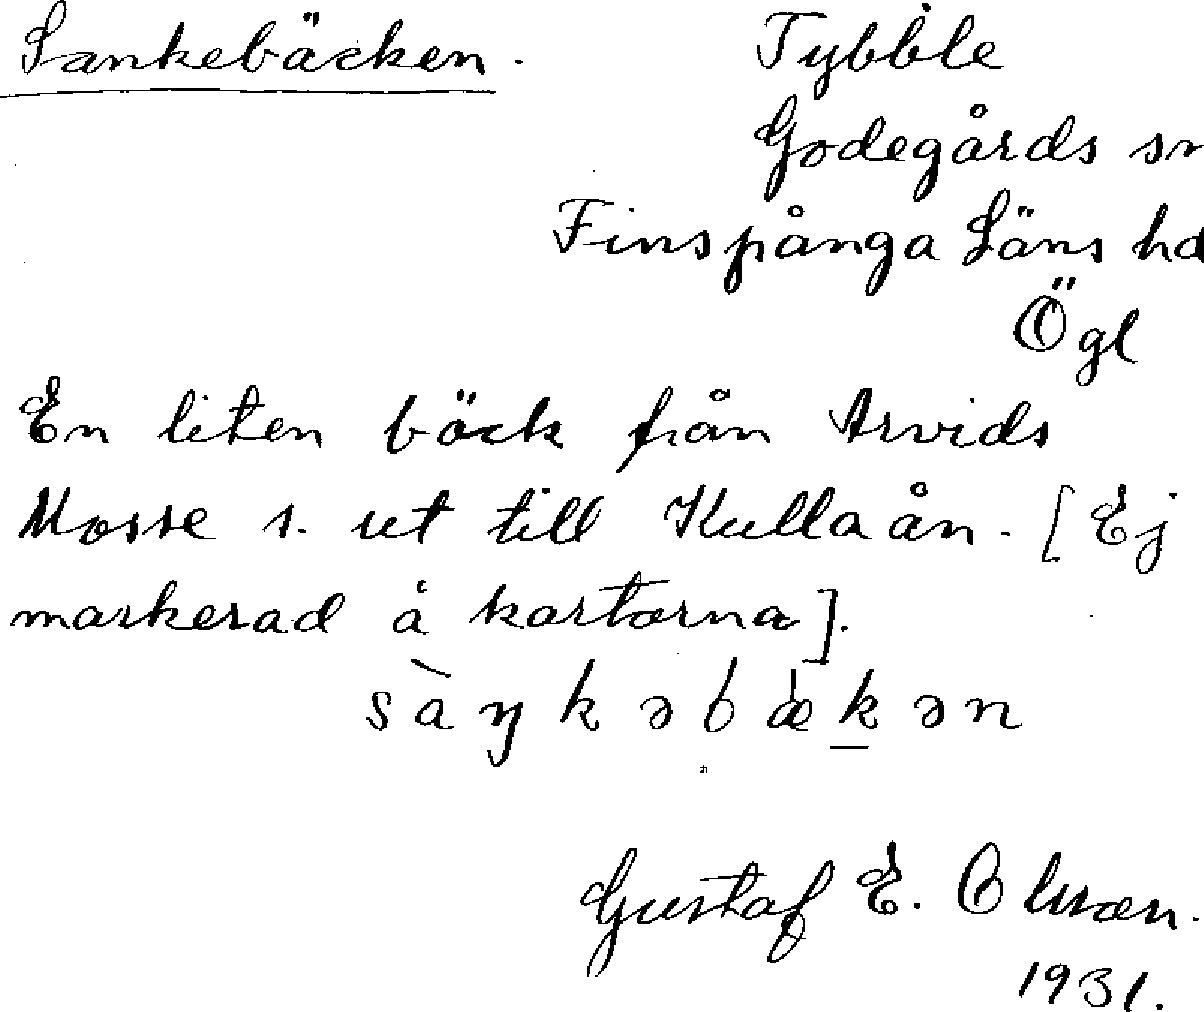 Sankebäcken. Tybble
Godegårds sn
Finspånga Läns hd
Ögl
En liten bäck från Arvids
Mosse s. ut till Kullaån. [Ej
markerad å kartorna].
sàŋkəbækən
Gustaf E. Olson.
1931.